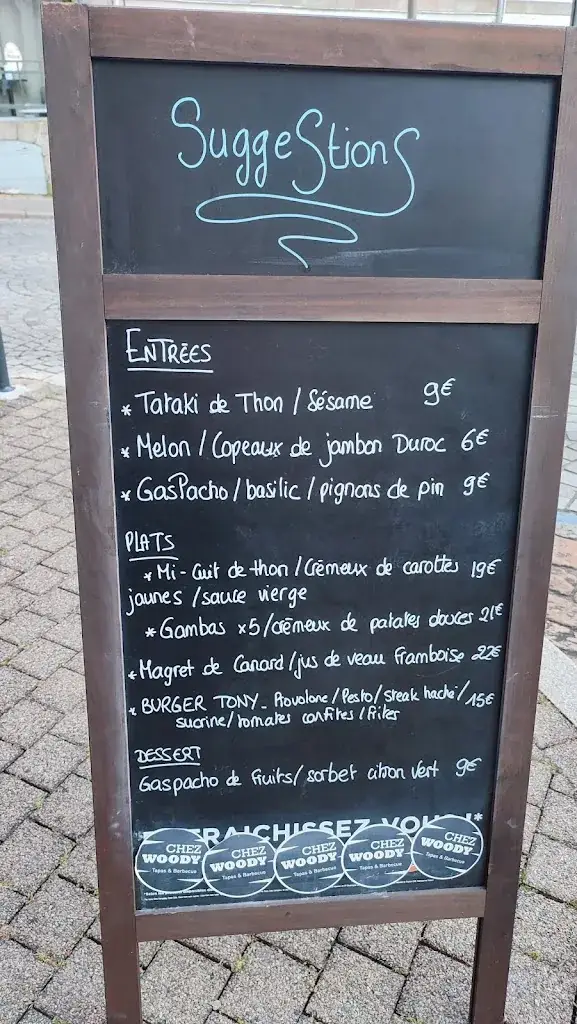 SuggeStionS
ENTRÉES
* Tataki de Thon / Sésame 9€
* Melon / Copeaux de jambon Duroc 6€
* GasPacho / basilic / pignons de pin 9€
PLATS
* Mi-Cuit de thon / Crémeux de carottes 19€
jaunes / sauce vierge
* Gambas x5 / crémeux de patates douces 21€
* Magret de Canard / jus de veau Framboise 22€
* BURGER TONY_ Provolone / Pesto / Steak haché / 15€
sucrine / tomates confites / frites
DESSERT
Gaspacho de Fruits / sorbet citron vert 9€
CHEZ
WOODY
Tapas & Barbecue
CHEZ
WOODY
Tapas & Barbecue
CHEZ
WOODY
Tapas & Barbecue
CHEZ
WOODY
Tapas & Barbecue
CHEZ
WOODY
Tapas & Barbecue